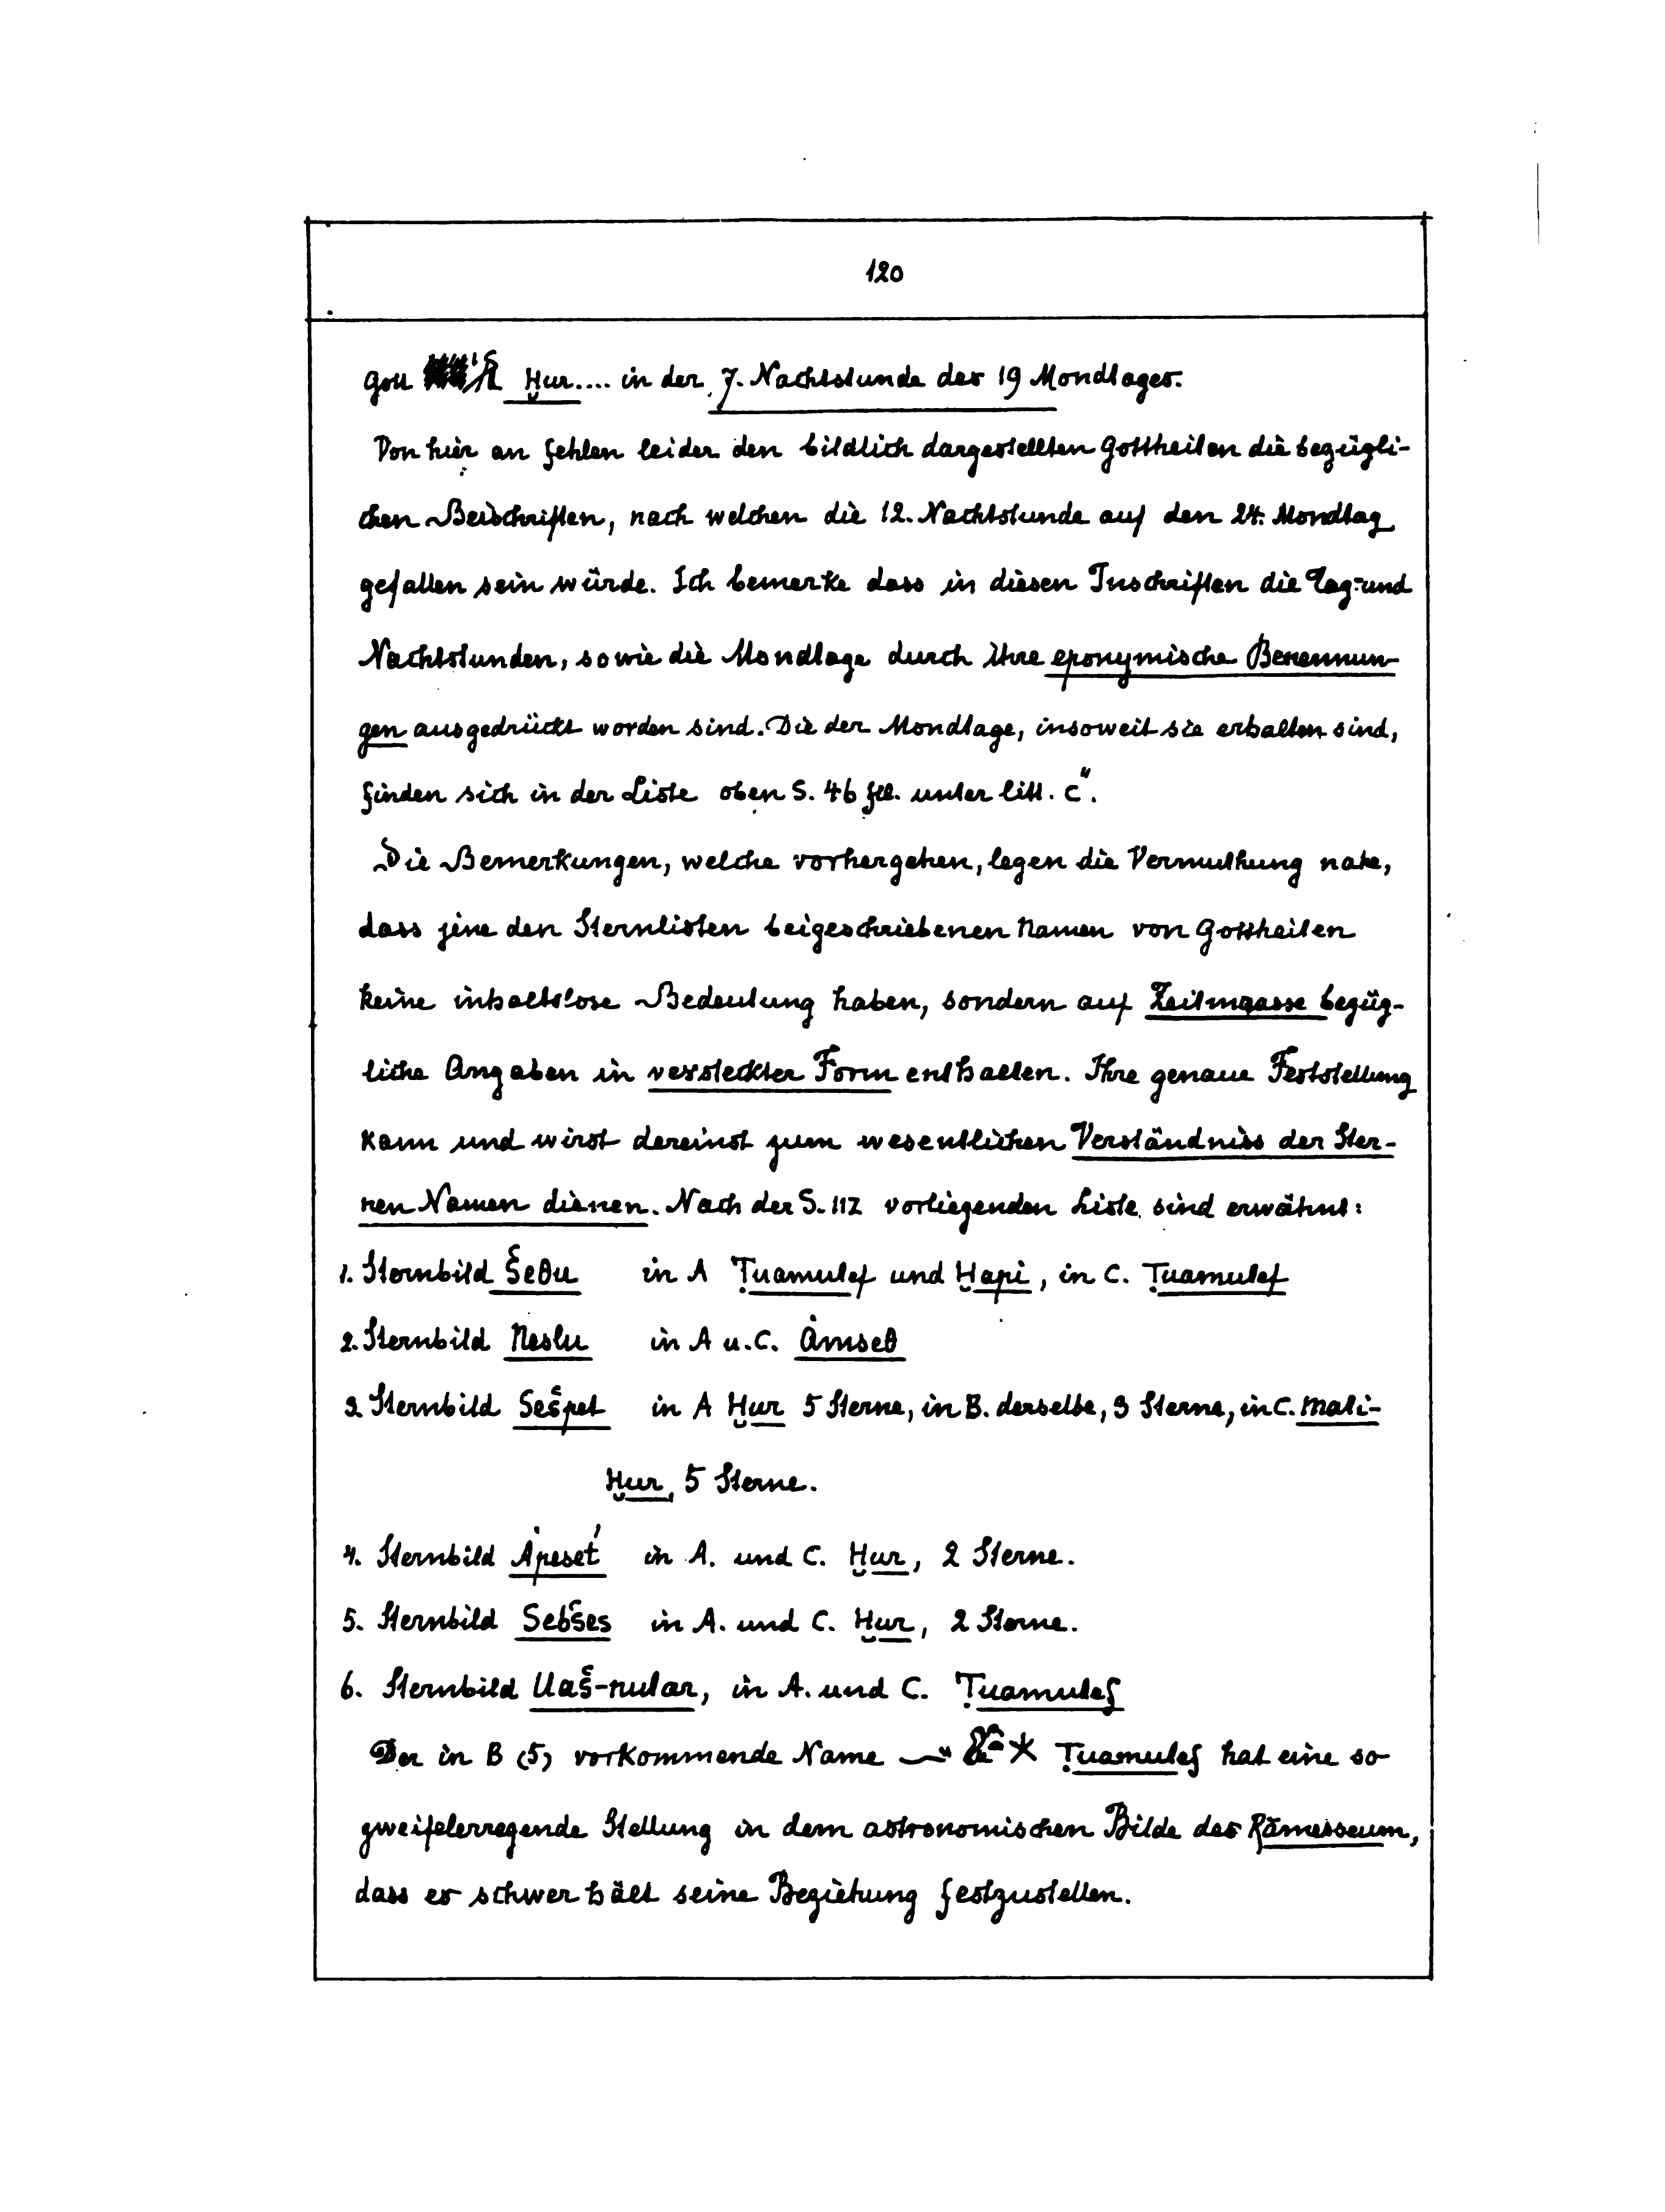 120
Gott Ḫur.... in der 7. Nachtstunde des 19 Mondtages.
Von hier an fehlen leider den bildlich dargestellten Gottheiten die bezügli-
chen Beischriften, nach welchen die 12. Nachtstunde auf den 24. Mondtag
gefallen sein würde. Ich bemerke dass in diesen Inschriften die Tag- und
Nachtstunden, sowie die Mondtage durch ihre eponymische Benennun-
gen ausgedrückt worden sind. Die der Mondtage, insoweit sie erhalten sind,
finden sich in der Liste oben S. 46 fll. unter litt. C".
Die Bemerkungen, welche vorhergehen, legen die Vermuthung nahe,
dass jene den Sternlisten beigeschriebenen Namen von Gottheiten
keine inhaltslose Bedeutung haben, sondern auf Zeitmaasse bezüg-
liche Angaben in versteckter Form enthalten. Ihre genaue Feststellung
kann und wird dereinst zum wesentlichen Verständniss der Ster-
nen Namen dienen. Nach der S. 112 vorliegenden Liste sind erwähnt:
1. Sternbild Šeθu in A Ṭuamutef und Ḫapi, in C. Ṭuamutef
2. Sternbild Nestu in A u. C. Ȧmseθ
3. Sternbild Sešpet in A Ḫur 5 Sterne, in B. derselbe, 3 Sterne, in C. Mati-
Ḫur, 5 Sterne.
4. Sternbild Ȧpeset́ in A. und C. Ḫur, 2 Sterne.
5. Sternbild Sebšes in A. und C. Ḫur, 2 Sterne.
6. Sternbild Uaš-nutar, in A. und C. Ṭuamutef
Der in B (5) vorkommende Name Ṭuamutef hat eine so
zweifelerregende Stellung in dem astronomischen Bilde des Rāmesseum,
dass es schwer hält seine Beziehung festzustellen.